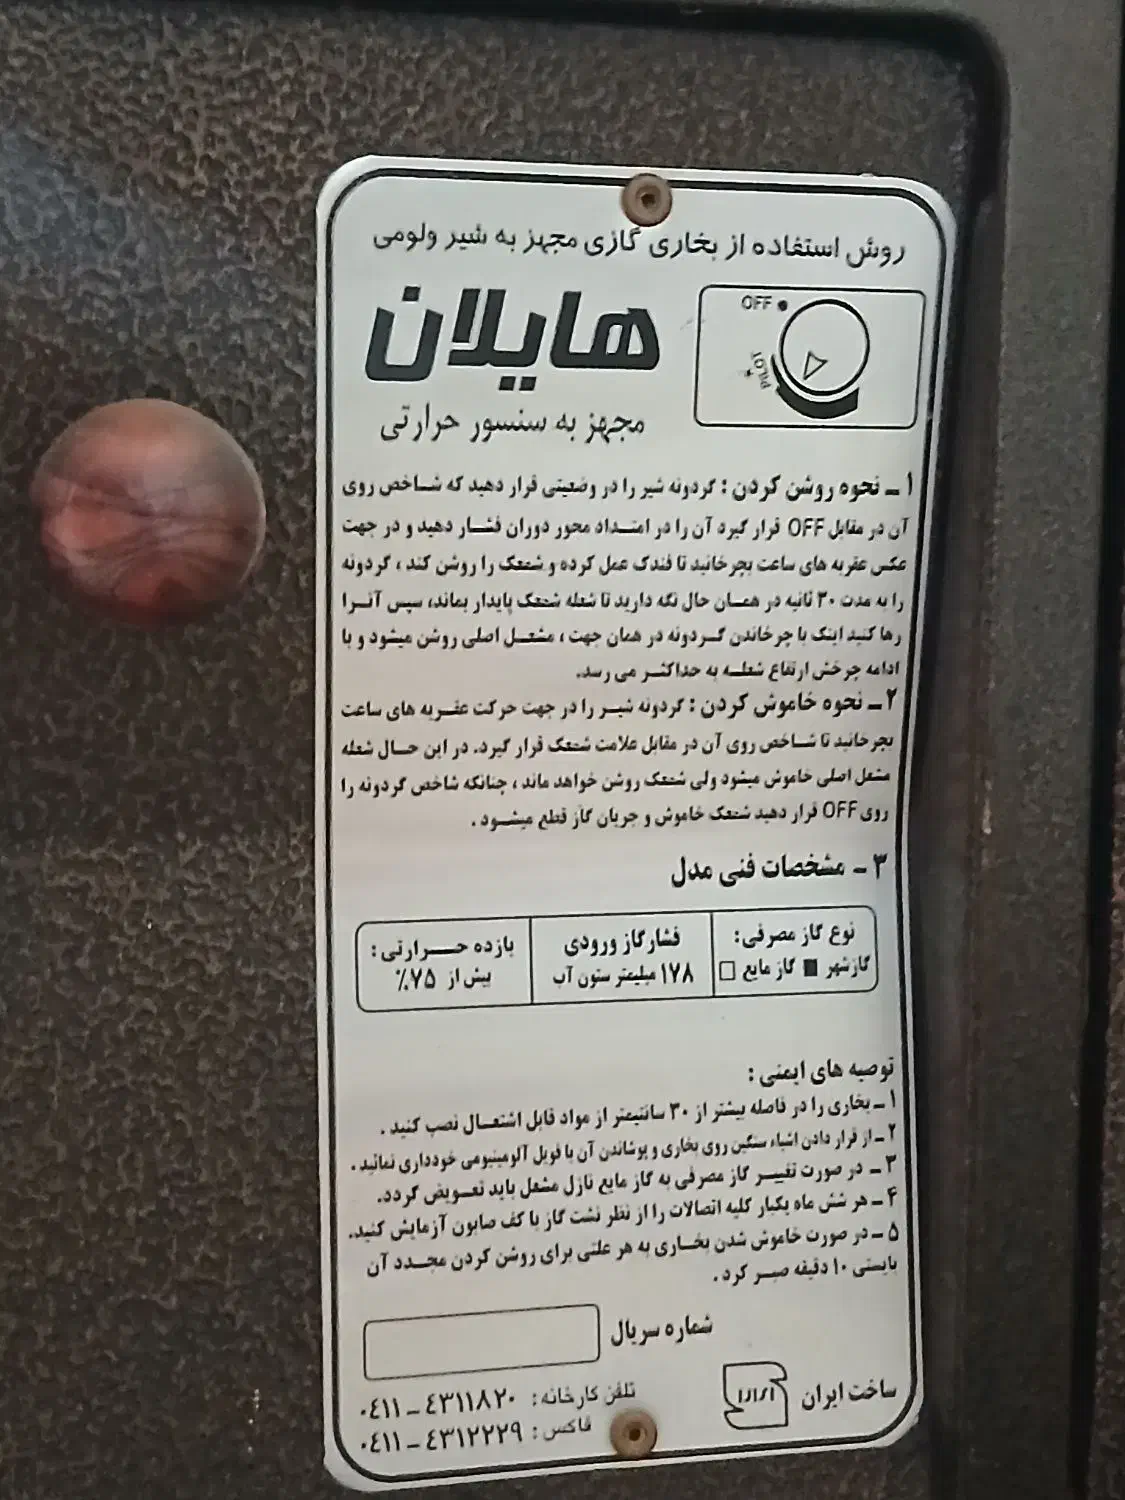 روش استفاده از بخاری گازی مجهز به شیر ولومی
OFF
PILOT
هایلان
مجهز به سنسور حرارتی
۱ـ نحوه روشن کردن : گردونه شیر را در وضعیتی قرار دهید که شاخص روی
آن در مقابل OFF قرار گیرد آن را در امتداد محور دوران فشار دهید و در جهت
عکس عقربه های ساعت بچرخانید تا فندک عمل کرده و شمعک را روشن کند ، گردونه
را به مدت ۳۰ ثانیه در همان حال نگه دارید تا شعله شمعک پایدار بماند، سپس آنرا
رها کنید اینک با چرخاندن گردونه در همان جهت ، مشعل اصلی روشن میشود و با
ادامه چرخش ارتفاع شعله به حداکثر می رسد.
۲ـ نحوه خاموش کردن : گردونه شیر را در جهت حرکت عقربه های ساعت
بچرخانید تا شاخص روی آن در مقابل علامت شمعک قرار گیرد. در این حال شعله
مشعل اصلی خاموش میشود ولی شمعک روشن خواهد ماند ، چنانکه شاخص گردونه را
روی OFF قرار دهید شمعک خاموش و جریان گاز قطع میشود .
۳ - مشخصات فنی مدل
نوع گاز مصرفی :
گازشهر ■ گاز مایع □
فشارگاز ورودی
۱۷۸ میلیمتر ستون آب
بازده حرارتی :
بیش از ۷۵٪
توصیه های ایمنی :
۱ـ بخاری را در فاصله بیشتر از ۳۰ سانتیمتر از مواد قابل اشتعال نصب کنید .
۲ـ از قرار دادن اشیاء سنگین روی بخاری و پوشاندن آن با فویل آلومینیومی خودداری نمائید .
۳ـ در صورت تغییر گاز مصرفی به گاز مایع نازل مشعل باید تعویض گردد.
۴ـ هر شش ماه یکبار کلیه اتصالات را از نظر نشت گاز با کف صابون آزمایش کنید.
۵ـ در صورت خاموش شدن بخاری به هر علتی برای روشن کردن مجدد آن
بایستی ۱۰ دقیقه صبر کرد .
شماره سریال
ساخت ایران
تلفن کارخانه : ۰٤۱۱ – ٤۳۱۱۸۲۰
فاکس : ۰٤۱۱ – ٤۳۱۲۲۲۹